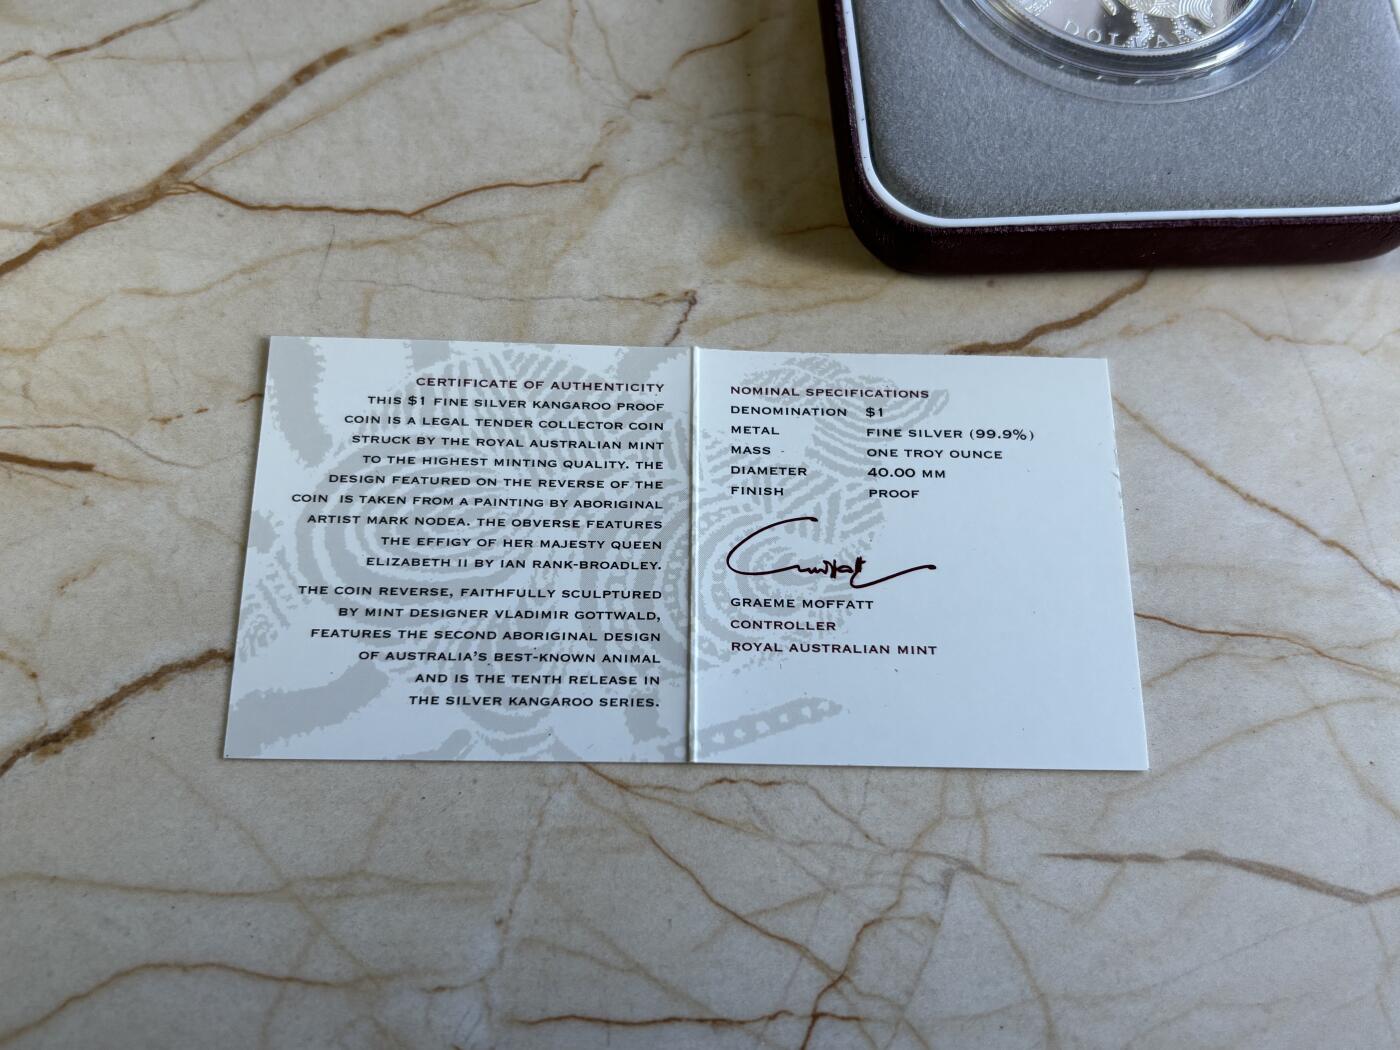 DOLLAR
CERTIFICATE OF AUTHENTICITY
THIS $1 FINE SILVER KANGAROO PROOF
COIN IS A LEGAL TENDER COLLECTOR COIN
STRUCK BY THE ROYAL AUSTRALIAN MINT
TO THE HIGHEST MINTING QUALITY. THE
DESIGN FEATURED ON THE REVERSE OF THE
COIN IS TAKEN FROM A PAINTING BY ABORIGINAL
ARTIST MARK NODEA. THE OBVERSE FEATURES
THE EFFIGY OF HER MAJESTY QUEEN
ELIZABETH II BY IAN RANK-BROADLEY.
THE COIN REVERSE, FAITHFULLY SCULPTURED
BY MINT DESIGNER VLADIMIR GOTTWALD,
FEATURES THE SECOND ABORIGINAL DESIGN
OF AUSTRALIA'S BEST-KNOWN ANIMAL
AND IS THE TENTH RELEASE IN
THE SILVER KANGAROO SERIES.
NOMINAL SPECIFICATIONS
DENOMINATION $1
METAL FINE SILVER (99.9%)
MASS ONE TROY OUNCE
DIAMETER 40.00 MM
FINISH PROOF
GRAEME MOFFATT
CONTROLLER
ROYAL AUSTRALIAN MINT